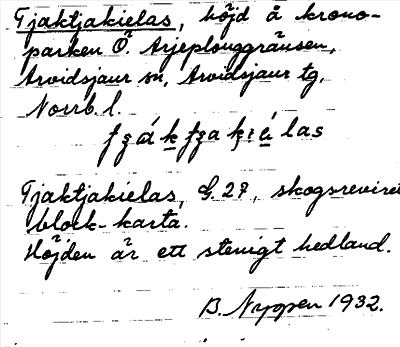 Tjaktjakielas, höjd å krono-
parken Ö. Arjeplouggränsen,
Arvidsjaur sn, Arvidsjaur tg,
Norrb. l.
las
Tjaktjakielas, G. 27, skogsreviret
block-karta.
Höjden är ett stenigt hedland.
B. Nygren 1932.